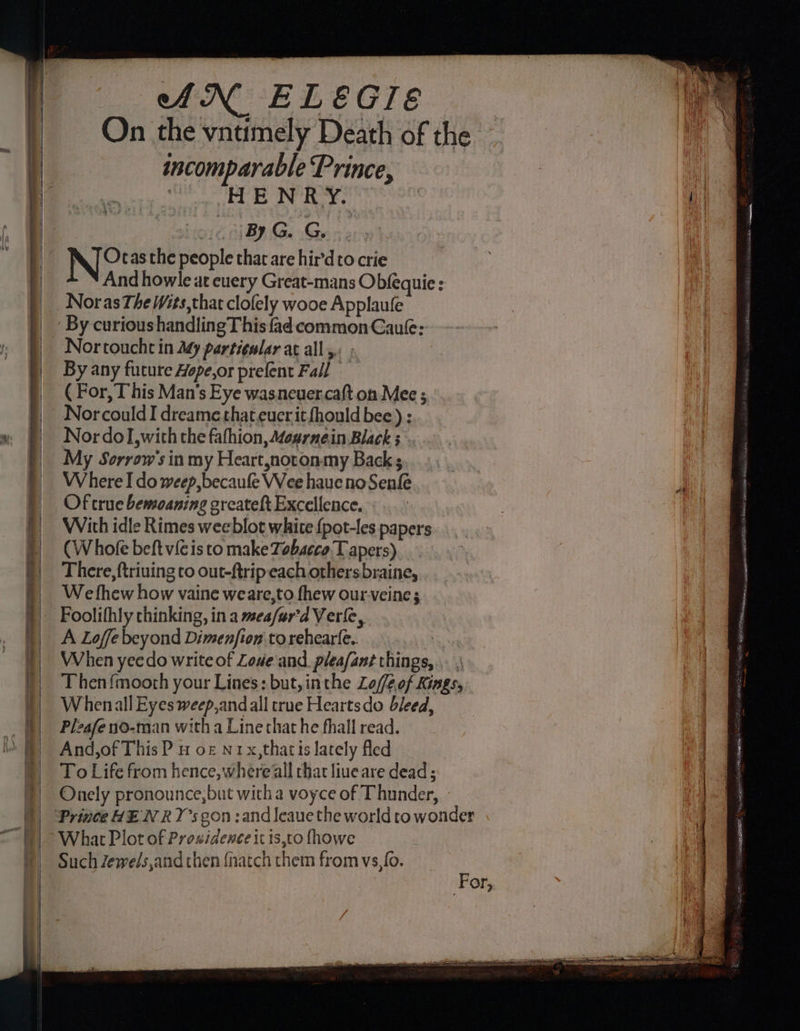 AN ELEGIE
On the vntimely Death of the
incomparable Prince,
HENRY.
By G. G.
NOt as the people that are hir'd to crie
And howle at euery Great-mans Obſequie:
Nor as The Wits, that cloſely wooe Applauſe
By curious handling This ſad common Cauſe:
Nor toucht in My particular at all,
By any future Hope, or preſent Fall
(For, This Man's Eye was neuer caſt on Mee;
Nor could I dreame that euer it ſhould bee):
Nor do I, with the faſhion, Mourne in Black;
My Sorrow's in my Heart, not on my Back;
Where I do weep, becauſe Wee haue no Senſe
Of true bemoaning greateſt Excellence.
With idle Rimes wee blot white ſpot-les papers
(Whoſe beſt vſe is to make Tobacco Tapers)
There, ſtriuing to out-ſtrip each others braine,
We ſhew how vaine we are, to ſhew our veine;
Fooliſhly thinking, in a meaſur'd Verſe,
A Loſſe beyond Dimenſion to rehearſe.
When yee do write of Loue and pleaſant things,
Then ſmooth your Lines: but, in the Loſſe of Kings,
When all Eyes weep, and all true Hearts do bleed,
Pleaſe no-man with a Line that he ſhall read.
And, of This PHOENIX, that is lately fled
To Life from hence, where all that liue are dead;
Onely pronounce, but with a voyce of Thunder,
Prince HENRY's gon: and leaue the world to wonder
What Plot of Prouidence it is, to ſhowe
Such Iewels, and then ſnatch them from vs, ſo.
For,